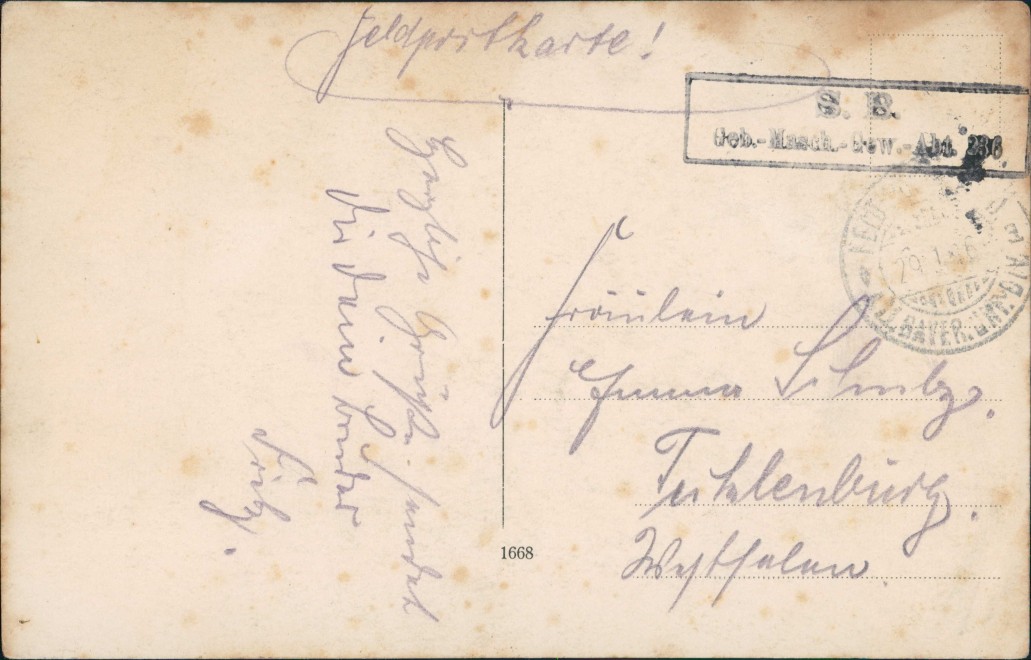 Feldpostkarte!
S. B.
Geb.-Masch.-Gew.-Abt. 236
29. 1.
BAYER.
Herzliche Grüße sendet
dir dein bruder
Fritz.
Fräulein
Emma Schulz.
Tecklenburg.
Westfalen.
1668